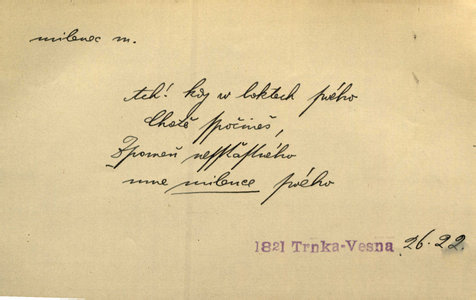 milenec m.
Ach! kdy w loktech swého
Chotě spočineš,
Zpomeň nesstiastného
mne milence swého
1821 Trnka-Vesna 26.22.